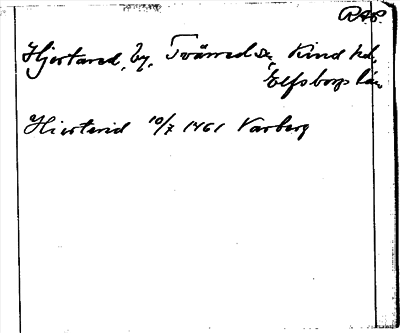 RAP.
Hjortared, by, Tvärred sn, Kind hd,
Elfsborgs län
Hiorterid 10/7 1461 Varberg